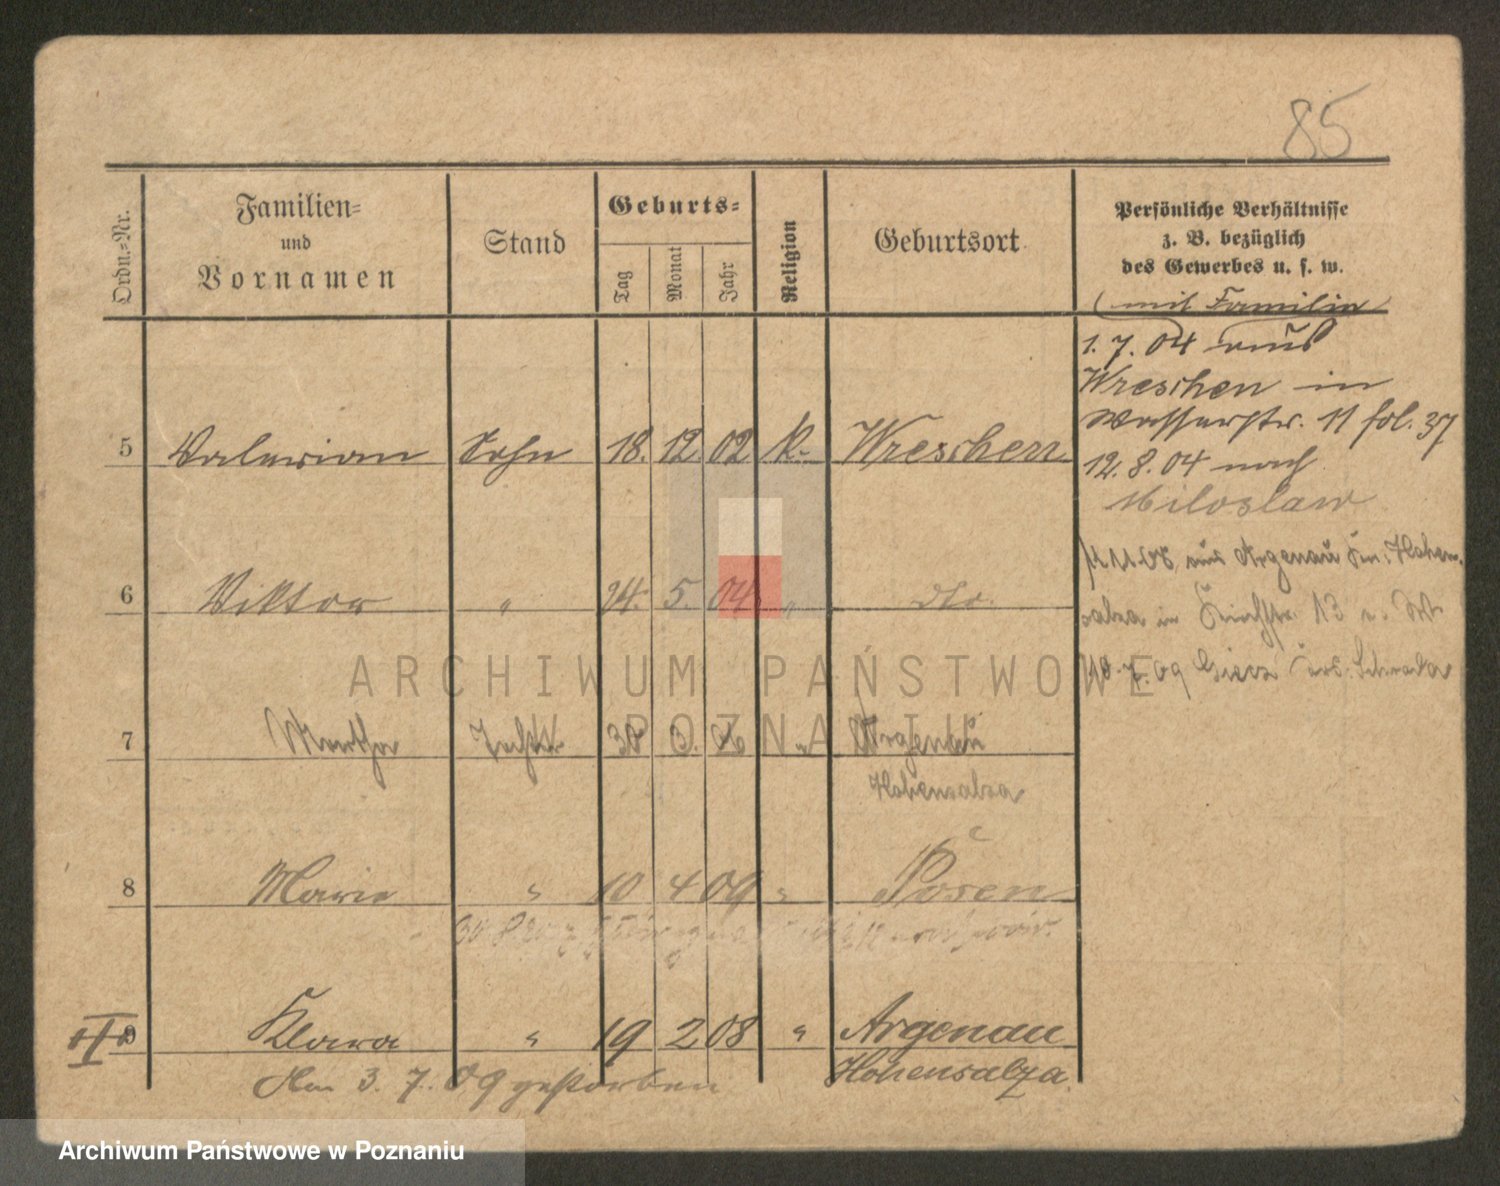 85
Ordn.=Nr.
Familien=
und
Vornamen
Stand
Geburts=
Tag
Monat
Jahr
Religion
Geburtsort
Persönliche Verhältnisse
z. B. bezüglich
des Gewerbes u. s. w.
(mit Familie)
1. 7. 04 aus
Wreschen in
Wasserstr. 11 fol. 37
12. 8. 04 nach
Miloslaw
5 Valerian Sohn 18. 12 02 k. Wreschen
aus Argenau Kr. Hohen-
salza in 13
6 Viktor " 24. 5. 04 " do.
7. 09
7 Martha Tochter 3. " Argenau
Hohensalza
8 Marie " 10 4 09 " Posen
9 Klara " 19 2 08 " Argenau
Am 3. 7. 09 gestorben Hohensalza
ARCHIWUM PAŃSTWOWE
W POZNANIU
Archiwum Państwowe w Poznaniu